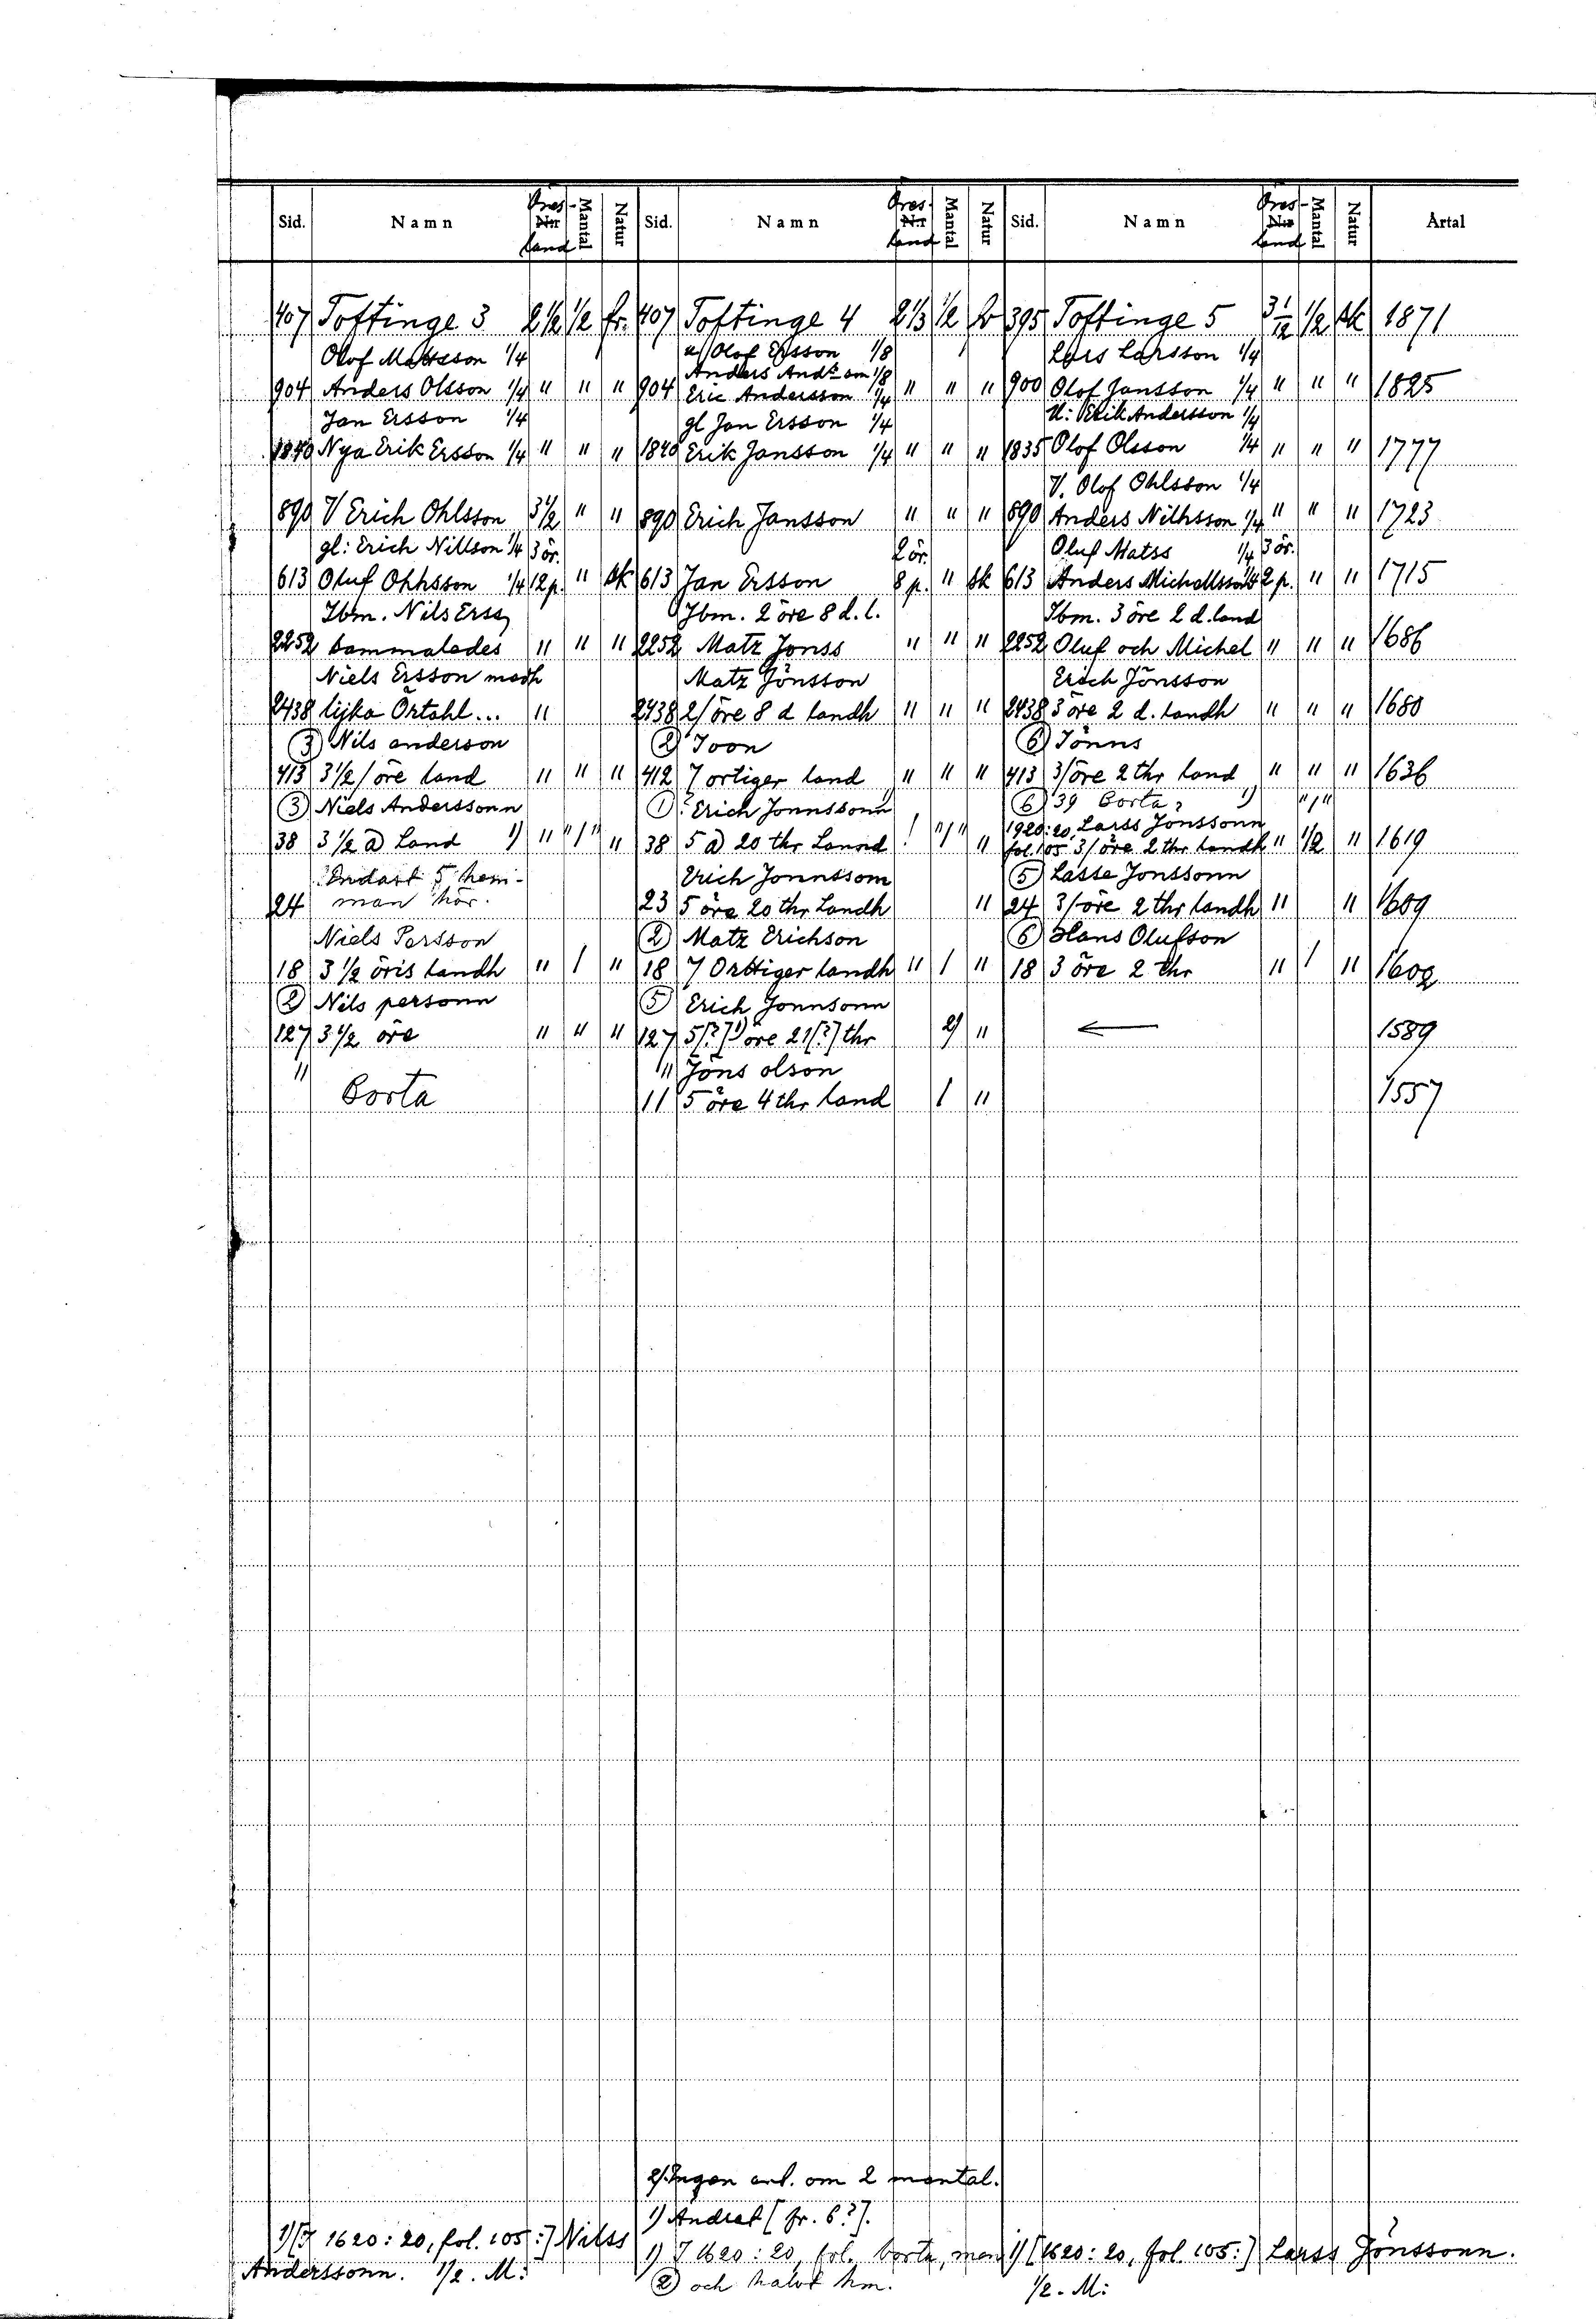 Sid. Namn Öres- Nr land Mantal Natur Sid. Namn Öres- Nr land Mantal Natur Sid. Namn Öres- Nr land Mantal Natur Årtal
407 Toftinge 3 2 1/2 1/2 fr. 407 Toftinge 4 2 1/3 1/2 fr 395 Toftinge 5 3 1/12 1/2 sk 1871
Olof Matsson 1/4 u/ Olof Ersson 1/8 Lars Larsson 1/4
Anders And:son 1/8
904 Anders Olsson 1/4 " " " 904 Eric Andersson 1/4 " " " 900 Olof Jansson 1/4 " " " 1825
Jan Ersson 1/4 gl Jan Ersson 1/4 U: Erik Andersson 1/4
1840 Nya Erik Ersson 1/4 " " " 1840 Erik Jansson 1/4 " " " 1835 Olof Olsson 1/4 " " " 1777
V. Olof Ohlsson 1/4
890 V Erich Ohlsson 3 1/2 " " 890 Erich Jansson " " " 890 Anders Nilhsson 1/4 " " " 1723
gl: Erich Nillson 1/4 3 ör. 2 ör. Oluf Matss 1/4 3 ör.
613 Oluf Ohhsson 1/4 12 p. " sk 613 Jan Ersson 8 p. " sk 613 Anders Michellsson 1/4 2 p. " " 1715
Ibm. Nils Erss Ibm. 2 öre 8 d. l. Ibm. 3 öre 2 d. land
2252 sammaledes " " " 2252 Matz Jonss " " " 2252 Oluf och Michel " " " 1686
Niels Ersson medh Matz Jönsson Erich Jönsson
2438 lijka Örtahl... " 2438 2/öre 8 d landh " " " 2438 3 öre 2 d. landh " " " 1680
(3) Nils anderson (2) Joon (6) Jönns
413 3 1/2/ öre land " " " 412 7 ortiger land " " " 413 3/öre 2 thr land " " " 1636
(3) Niels Anderssonn (1) Erich Jonnssonn 1) (6) 39 Borta 1) "/"
1920:20, Larss Jönssonn
38 3 1/2 a) Land 1) " "/" " 38 5 a) 20 thr Lannd "/" " fol. 105 3/öre 2 thr landh " 1/2 " 1619
Endast 5 hem- Erich Jonnssom (5) Lasse Jonssonn
24 man här. 23 5 öre 20 thr Landh " 24 3/öre 2 thr landh " " 1609
Niels Persson (2) Matz Erichson (6) Hans Olufson
18 3 1/2 öris landh " 1 " 18 7 Orttiger landh " 1 " 18 3 öre 2 thr " 1 " 1602
(2) Nils personn (5) Erich Jonnsonn
127 3 1/2 öre " " " 127 5[?]1) öre 21[?] thr 2) " ← 1589
" Jöns olson
11 Borta 11 5 öre 4 thr land 1 " 1557
2) Ingen ant. om 2 mantal.
1) Ändrat [fr. 6?].
1) [I 1620:20, fol. 105:] Nilss
Anderssonn. 1/2. M:
1) I 1620:20, fol. borta, men
(2) och halvt hm.
1) [1620:20, fol. 105:] Larss Jönssonn.
1/2. M: